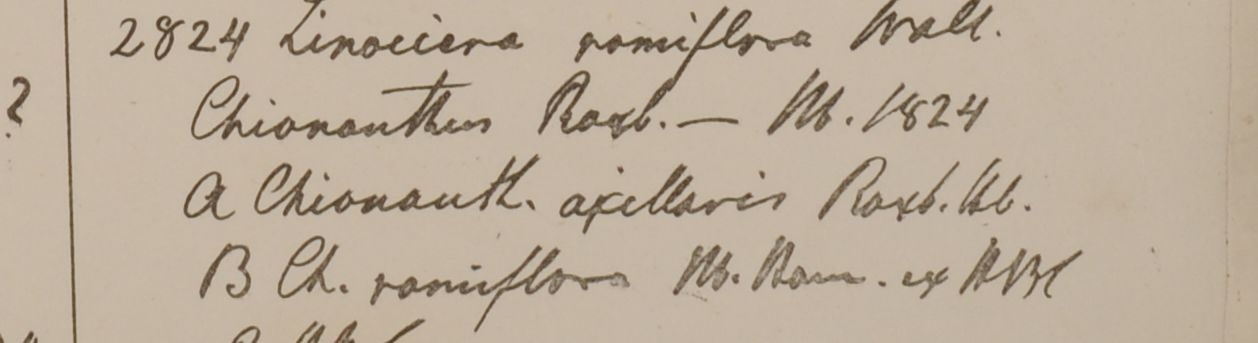 2824 Linociera ramiflora Wall.
? Chionanthus Roxb. — Hb. 1824
A Chionanth. axillaris Roxb. Hb.
B Ch. ramiflora Hb. Ham. ex HBC